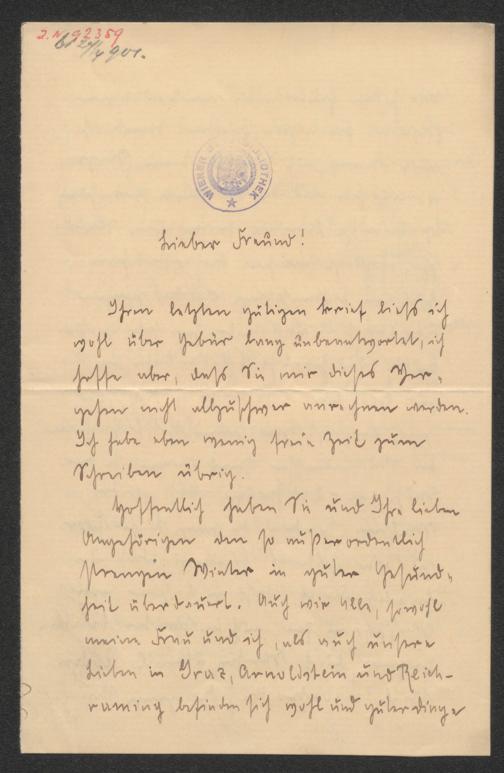 J. N. 92359
901.
WIENER BIBLIOTHEK
Lieber Freund!
Ihren letzten gütigen Brief ließ ich
wohl über Gebür lang unbeantwortet, ich
hoffe aber, daß Sie mir dieses Ver-
gehen nicht allzuschwer anrechnen werden.
Ich habe eben wenig freie Zeit zum
Schreiben übrig.
Hoffentlich haben Sie und Ihre lieben
Angehörigen den so außerordentlich
strengen Winter in guter Gesund-
heit überdauert. Auch wir alle, sowohl
meine Frau und ich, als auch unsere
Lieben in Graz, Arnoldstein und Reich-
raming befinden sich wohl und guter Dinge